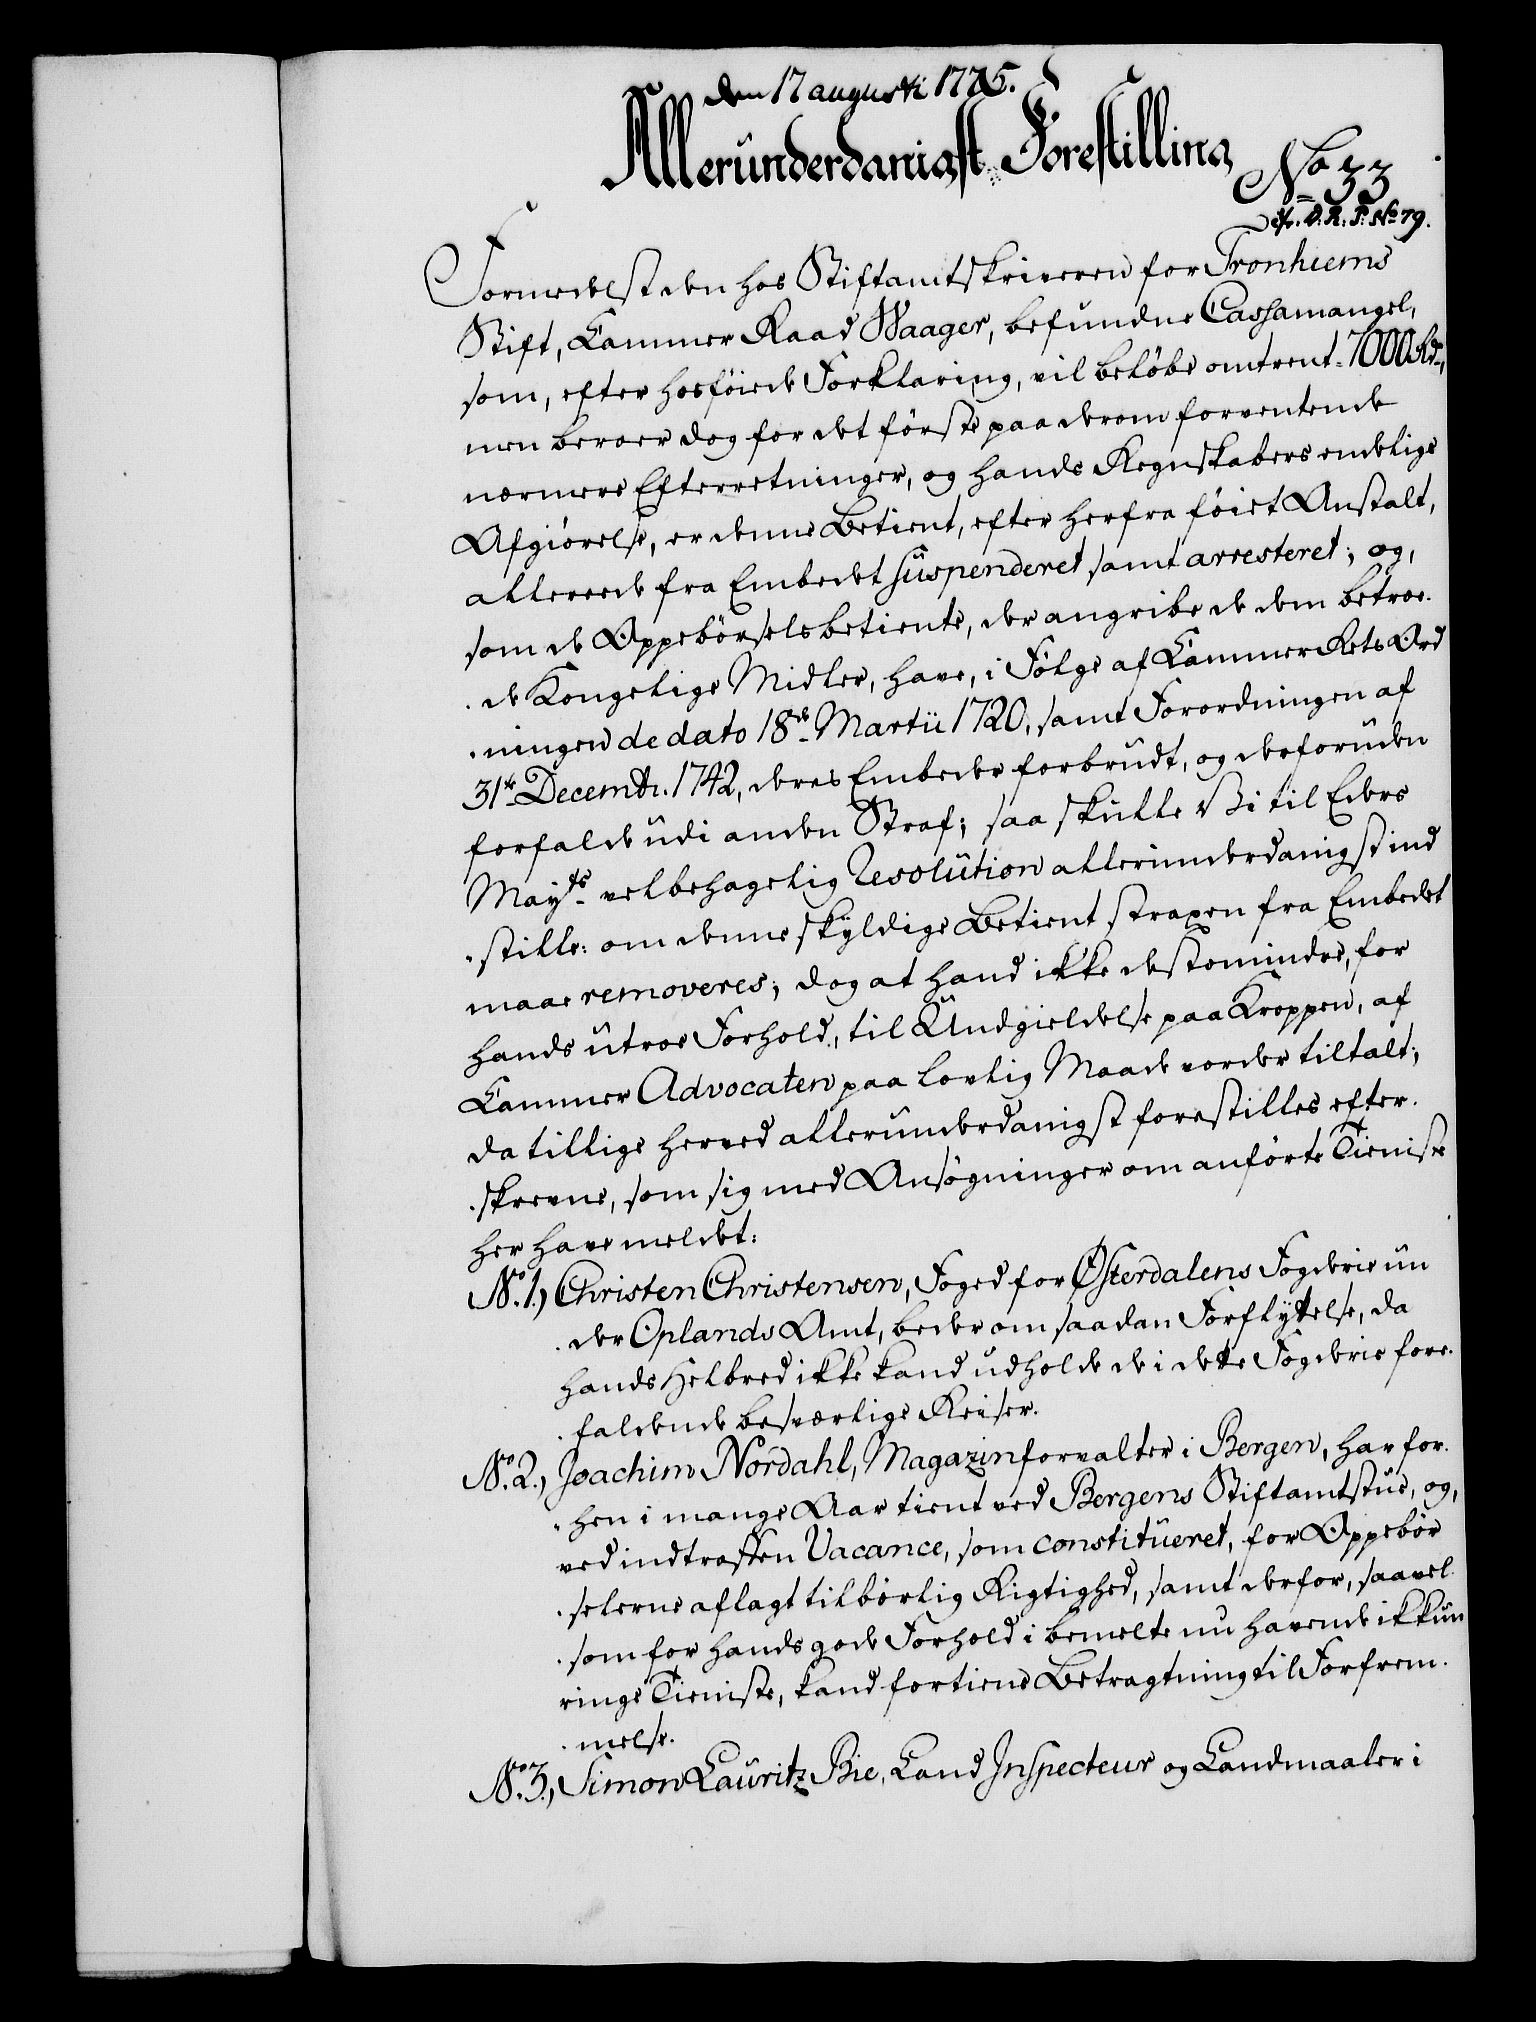 den 17 augusti 1775.
Allerunderdanigst Forestilling
No 33
D. R. P. No 79.
Formedelst den hos Stiftamtskriveren for Tronhiems
Stift, Cammer Raad Waager, befundne Cassamangel,
som, efter hosföiede Forklaring, vil beløbe omtrent 7000 Rdr,
men beroer dog for det förste paa derom forventende
nærmere Efterretninger, og hands Regnskabers endelige
Afgiørelse, er denne Betient, efter herfra föiet Anstalt,
allereede fra Embedet suspenderet samt arresteret; og,
som de Oppebörselsbetiente, der angribe de dem betroe-
-de Kongelige Midler, have, i Fölge af Cammer Rets Ord
-ningen de dato 18de Martii 1720, samt Forordningen af
31te Decembr. 1742, deres Embeder forbrudt, og desforuden
forfalde udi anden Straf; saa skulle Vi til Eders
Mayts velbehagelig Resolution allerunderdanigst ind
-stille: om denne skyldige Betient straxen fra Embedet
maae removeres; dog at hand ikke destomindre, for
hands utroe Forhold, til Undgieldelse paa Kroppen, af
Cammer Advocaten paa lovlig Maade vorder tiltalt;
da tillige herved allerunderdanigst forestilles efter-
-skrevne, som sig med Ansögninger om anförte Tieniste
her have meldet:
No. 1., Christen Christensen, Foged for Østerdalens Fogderie un
-der Oplands Amt, beder om saadan Forflyttelse, da
hands Helbred ikke kand udholde de i dette Fogderie fore-
-faldende besværlige Reiser.
No. 2., Joachim Nordahl, Magazinforvalter i Bergen, har for-
-hen i mange Aar tient ved Bergens Stiftamtstue, og,
ved indtroffen Vacance, som constitueret, for Oppebör
-selerne aflagt tilbörlig Rigtighed, samt derfor, saavel
-som for hands gode Forhold i bemelte nu havende ikkun
ringe Tieniste, kand fortiene Betragtning til Forfrem-
-melse.
No. 3., Simon Lauritz Bie, Land Inspecteur og Landmaaler i